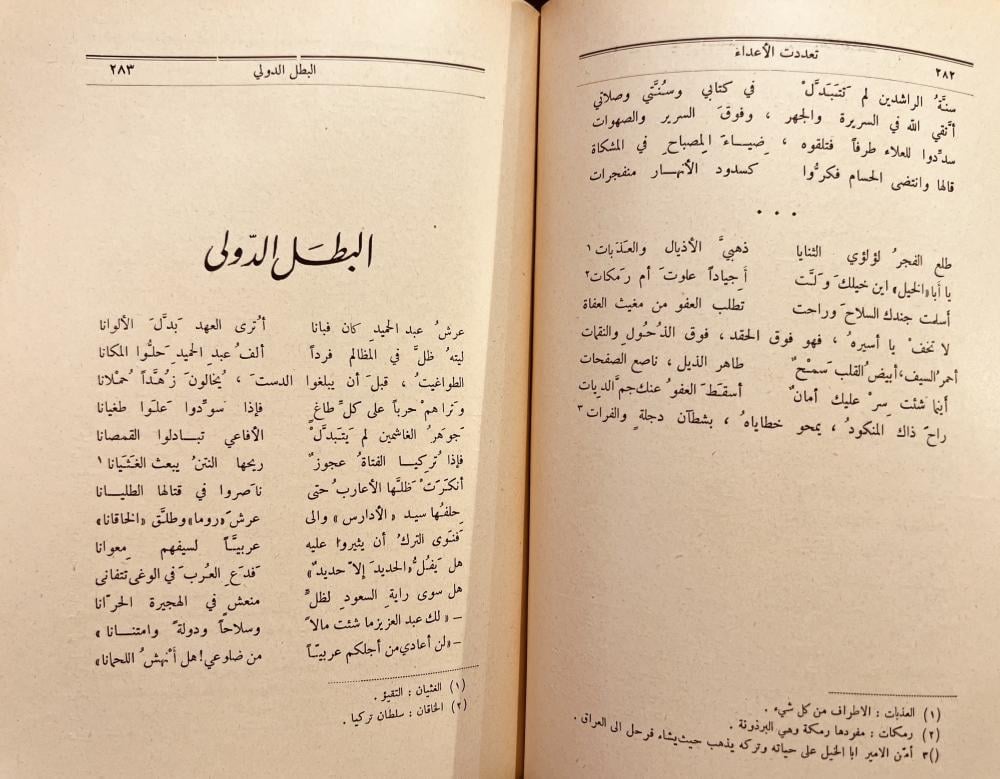 تعددت الأعداء ٢٨٢
سنةُ الراشدين لم تَتَبَدَّلْ في كتابي وسُنَّتي وصلاتي
أتقي الله في السريرة والجهر ، وفوقَ السرير والصهوات
سدِّدوا للعلاء طرفاً فتلقوه ، ضياءَ المصباحِ في المشكاة
قالها وانتضى الحسام فكرُّوا كسدود الأنهار منفجرات
• • •
طلع الفجرُ لؤلؤي الثنايا ذهبيَّ الأذيال والعَذَبات ١
يا أبا «الخيل» اين خيلكَ وَلَّت أجياداً علوتَ أم رَمكات ٢
أسلمت جندك السلاحَ وراحت تطلب العفو من مغيث العفاة
لا تخفْ يا أسيرهُ ، فهو فوق الحقد ، فوق الذُحُول والنقمات
أحمر السيف، أبيض القلب سَمْحٌ طاهر الذيل ، ناصع الصفحات
أينما شئت سِرْ عليك أمانٌ أسقَطَ العفوُ عنك جمَّ الديات
راحَ ذاك المنكودُ ، يمحو خطاياهُ ، بشطآن دجلةٍ والفرات ٣
(١) العذبات : الاطراف من كل شيء .
(٢) رمكات : مفردها رمكة وهي البرذونة .
()٣ أمّن الامير ابا الخيل على حياته وتركه يذهب حيث يشاء فرحل الى العراق .
البطل الدولي ٢٨٣
البطَل الدّولي
عرشُ عبد الحميدِ كان فبانا أتُرى العهد بَدَّلَ الألوانا
ليتهُ ظلَّ في المظالم فرداً ألفُ عبدِ الحميدِ حَلُّوا المكانا
الطواغيتُ ، قبلَ أن يبلغوا الدستَ ، يُخالونَ زُهَّداً حُملانا
وتراهمْ حرباً على كلِّ طاغٍ فإذا سوِّدوا عَلَوا طغيانا
جوهرُ الغاشمين لم يَتَبدَّلْ الأفاعي تبادلوا القمصانا
فإذا تُركيا الفتاةُ عجوزٌ ريحها النتنُ يبعث الغَثَيانا ١
أنكرَتْ ظلَّها الأعاربُ حتى ناصروا في قتالها الطليانا
حِلفُها سيد «الأدارس» والى عرشَ «روما» وطلَّق «الخاقانا»
فنوى التركُ أن يثيروا عليه عربيَّاً لسيفهم مِعوانا
هل يَفُلُّ «الحديدَ إلاّ حديدٌ» فدَعِ العُربَ في الوغى تتفانى
هل سوى رايةِ السعودِ لظلٍّ منعش في الهجيرة الحرّانا
– « لك عبد العزيز ما شئت مالاً وسلاحاً ودولةً وامتنانا »
– «لن أعادي من أجلكم عربيَّاً من ضلوعي! هل أَنهشُ اللحمانا»
(١) الغثيان : التقيؤ .
(٢) الخاقان : سلطان تركيا .